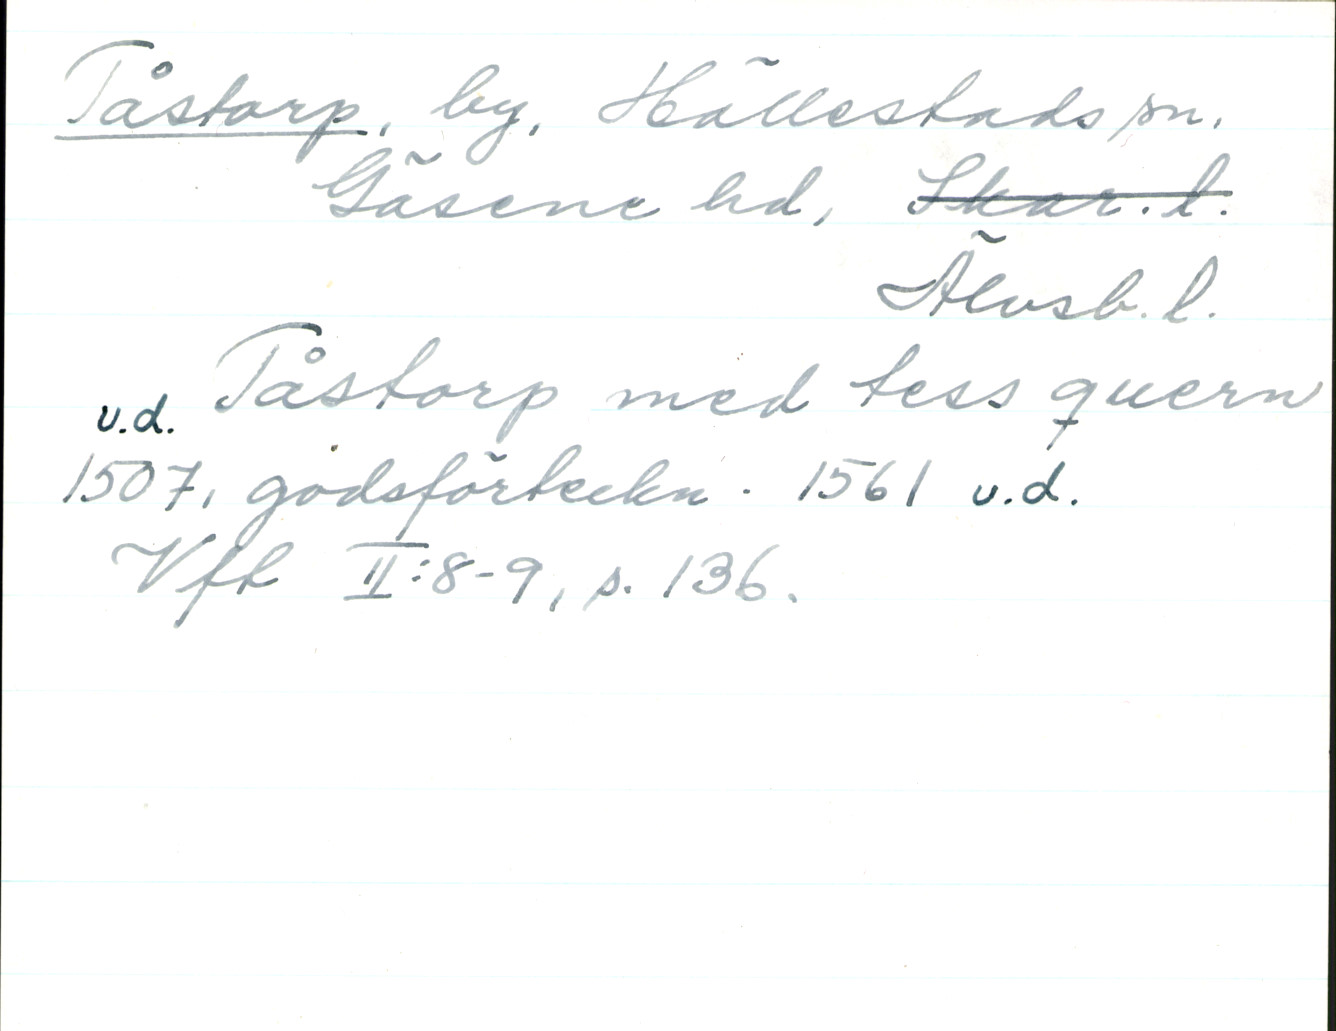 Tåstorp, by, Hällestads sn.
Gäsene hd, Skar. l.
Älvsb. l.
u.d. Tåstorp med tess quern
1507, godsförteckn. 1561 u.d.
Vfk II:8-9, s. 136.